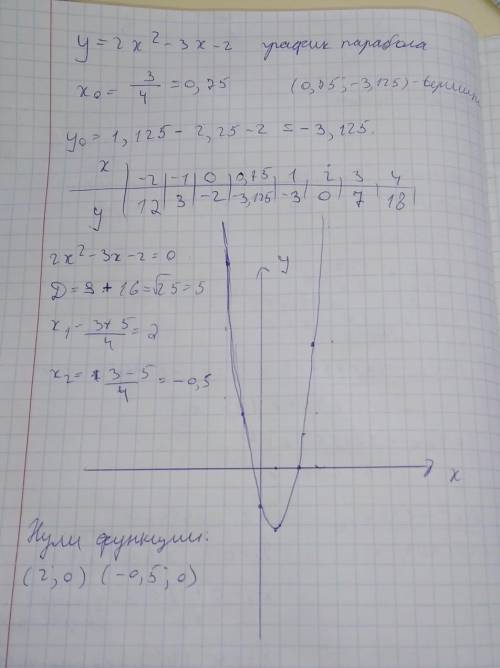 y = 2x² - 3x - 2 график парабола
x₀ = 3/4 = 0,75 (0,75; -3,125) - вершин
y₀ = 1,125 - 2,25 - 2 = -3,125.
x | -2 | -1 | 0 | 0,75 | 1 | 2 | 3 | 4
y | 12 | 3 | -2 | -3,125 | -3 | 0 | 7 | 18 |
2x² - 3x - 2 = 0
D = 9 + 16 = √25 = 5
x₁ = 3+5/4 = 2
x₂ = 3-5/4 = -0,5
y
x
Нули функции:
(2; 0) (-0,5; 0)